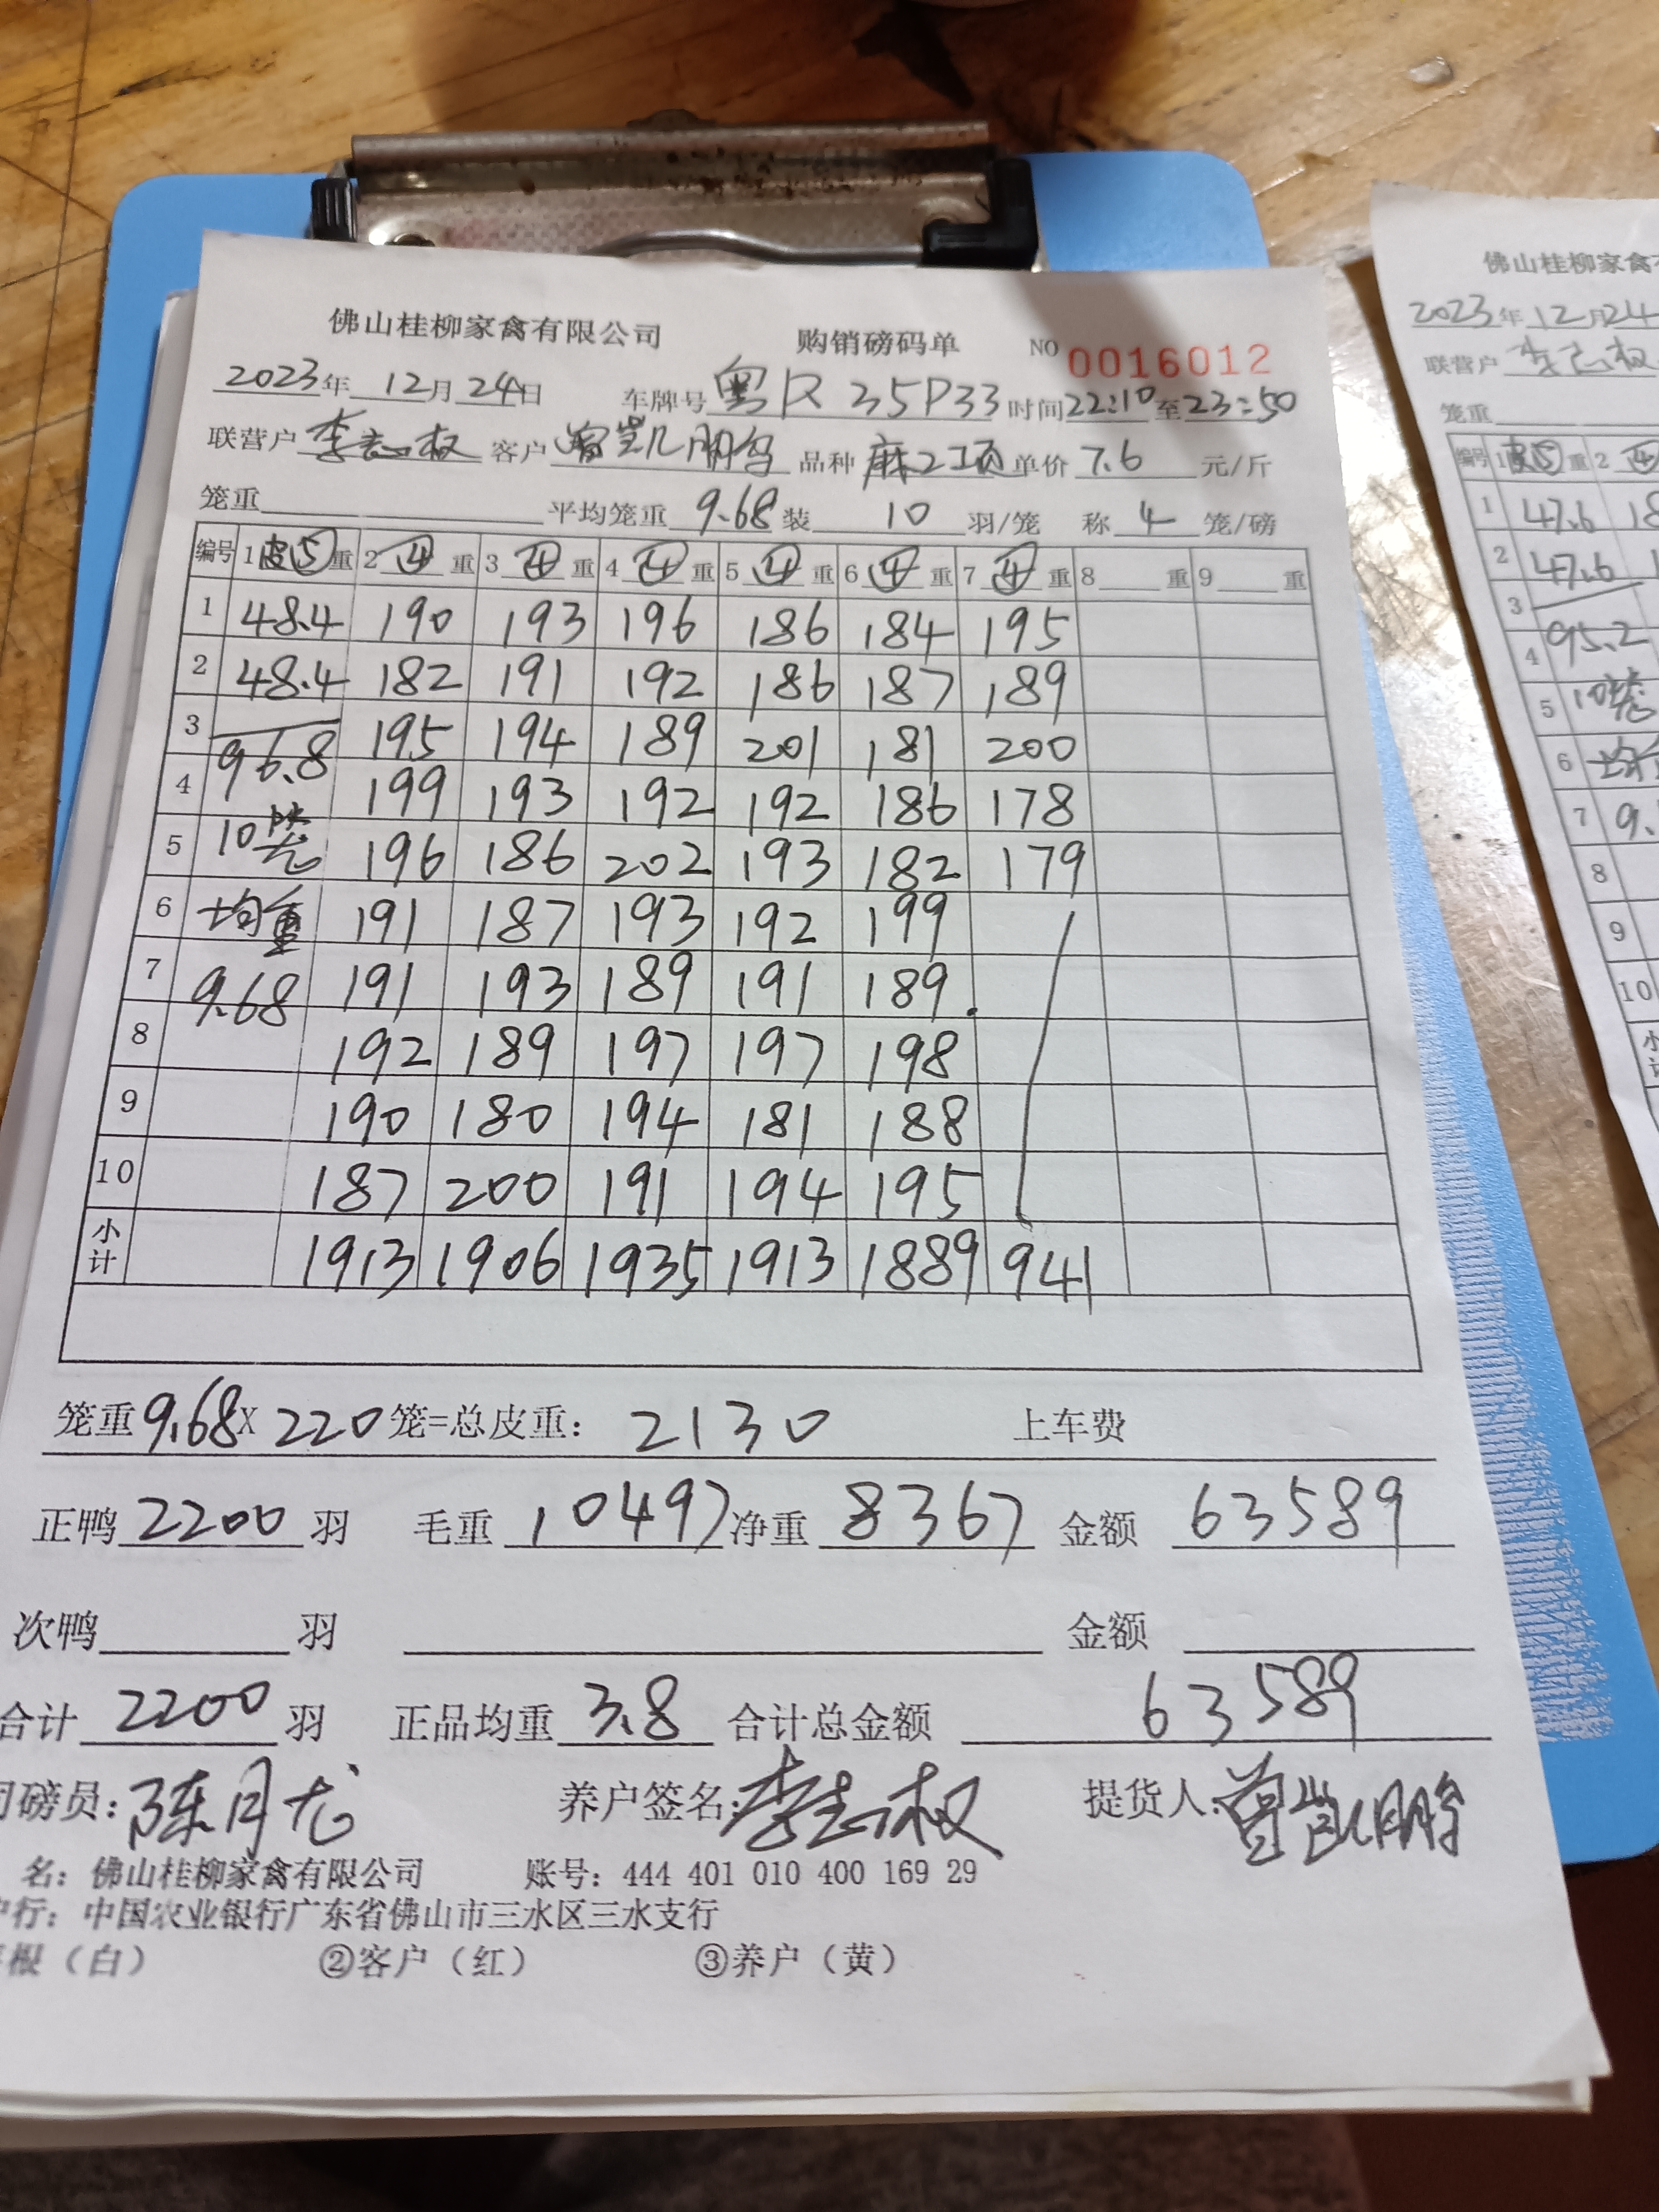 佛山桂柳家禽有限公司 购销磅码单 NO 0016012
2023年 12月 24日 车牌号 粤R 35P33 时间 22:10 至 23:50
联营户 李志权 客户 曾凯鹏 品种 麻2项 单价 7.6 元/斤
笼重 平均笼重 9.68 装 10 羽/笼 称 4 笼/磅
编号 1 皮⑤ 重 2 ④ 重 3 ④ 重 4 ④ 重 5 ④ 重 6 ④ 重 7 ④ 重 8 重 9 重
1 48.4 190 193 196 186 184 195
2 48.4 182 191 192 186 187 189
3 96.8 195 194 189 201 181 200
4 199 193 192 192 186 178
5 10笼 196 186 202 193 182 179
6 均重 191 187 193 192 199
7 9.68 191 193 189 191 189.
8 192 189 197 197 198
9 190 180 194 181 188
10 187 200 191 194 195
小计 1913 1906 1935 1913 1889 941
笼重 9.68 X 220 笼=总皮重: 2130 上车费
正鸭 2200 羽 毛重 10497 净重 8367 金额 63589
次鸭 羽 金额
合计 2200 羽 正品均重 3.8 合计总金额 63589
司磅员: 陈月龙 养户签名: 李志权 提货人: 曾凯鹏
名: 佛山桂柳家禽有限公司 账号: 444 401 010 400 169 29
户行: 中国农业银行广东省佛山市三水区三水支行
根(白) ②客户(红) ③养户(黄)
佛山桂柳家禽
2023年 12月 24
联营户 李志权
笼重
编号 1 皮⑤ 重 2 ④
1 47.6 18
2 47.6 1
3
4 95.2
5 10笼
6
7 9.
8
9
10
小计